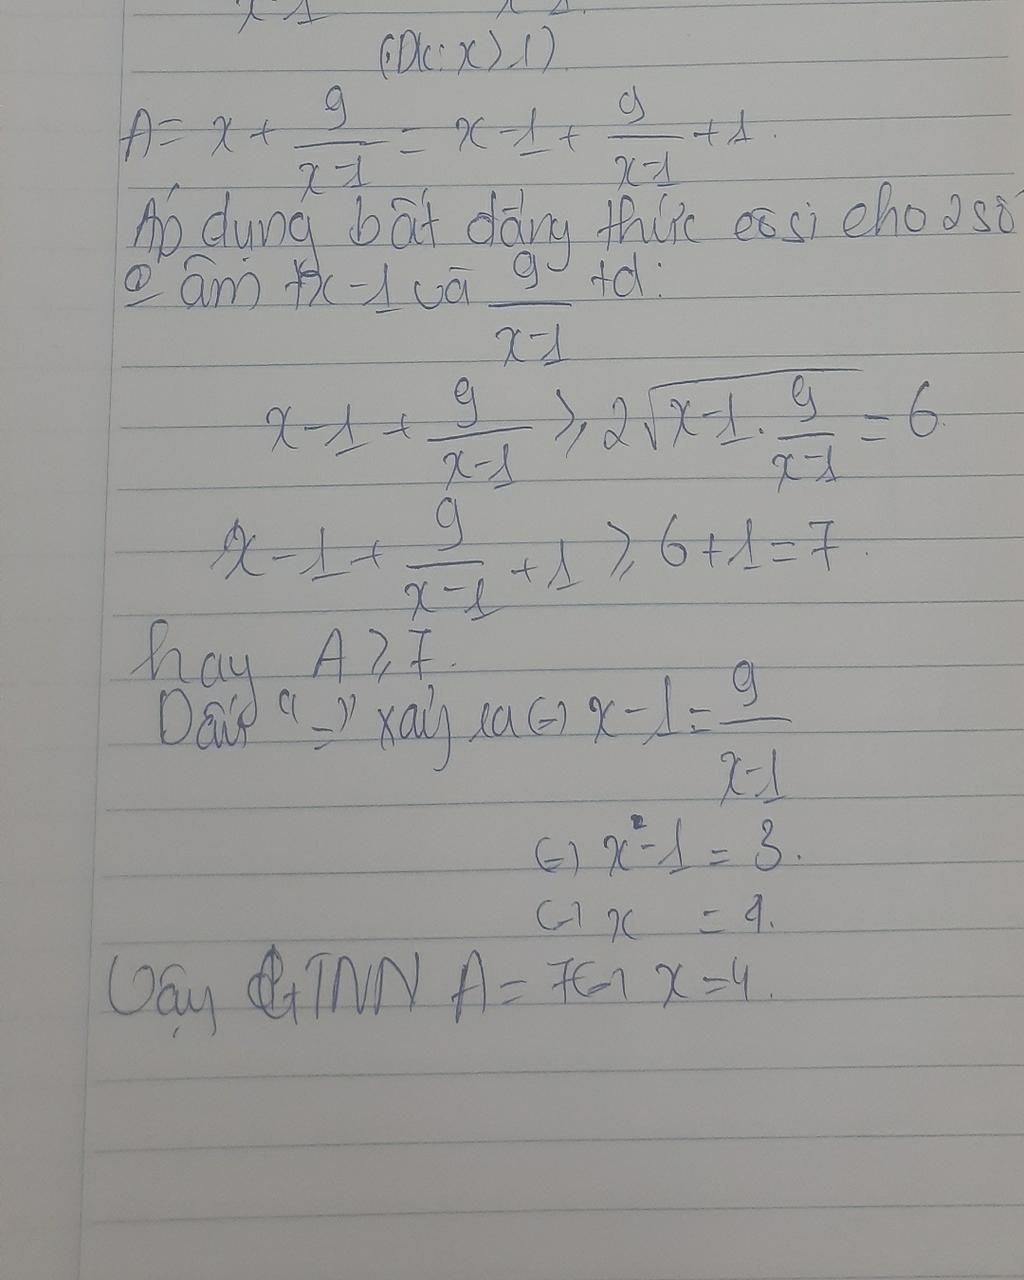 (Đk: x > 1)
A = x + 9/(x-1) = x - 1 + 9/(x-1) + 1.
Áp dụng bất đẳng thức côsi cho 2 số
âm x-1 và 9/(x-1) +d:
x - 1 + 9/(x-1) ≥ 2√(x-1 . 9/(x-1)) = 6.
x - 1 + 9/(x-1) + 1 ≥ 6 + 1 = 7.
hay A ≥ 7.
Dấu "=" xảy ra (=) x - 1 = 9/(x-1)
(=) x² - 1 = 3.
(=) x = 4.
Vậy GTNN A = 7 (=) x = 4.